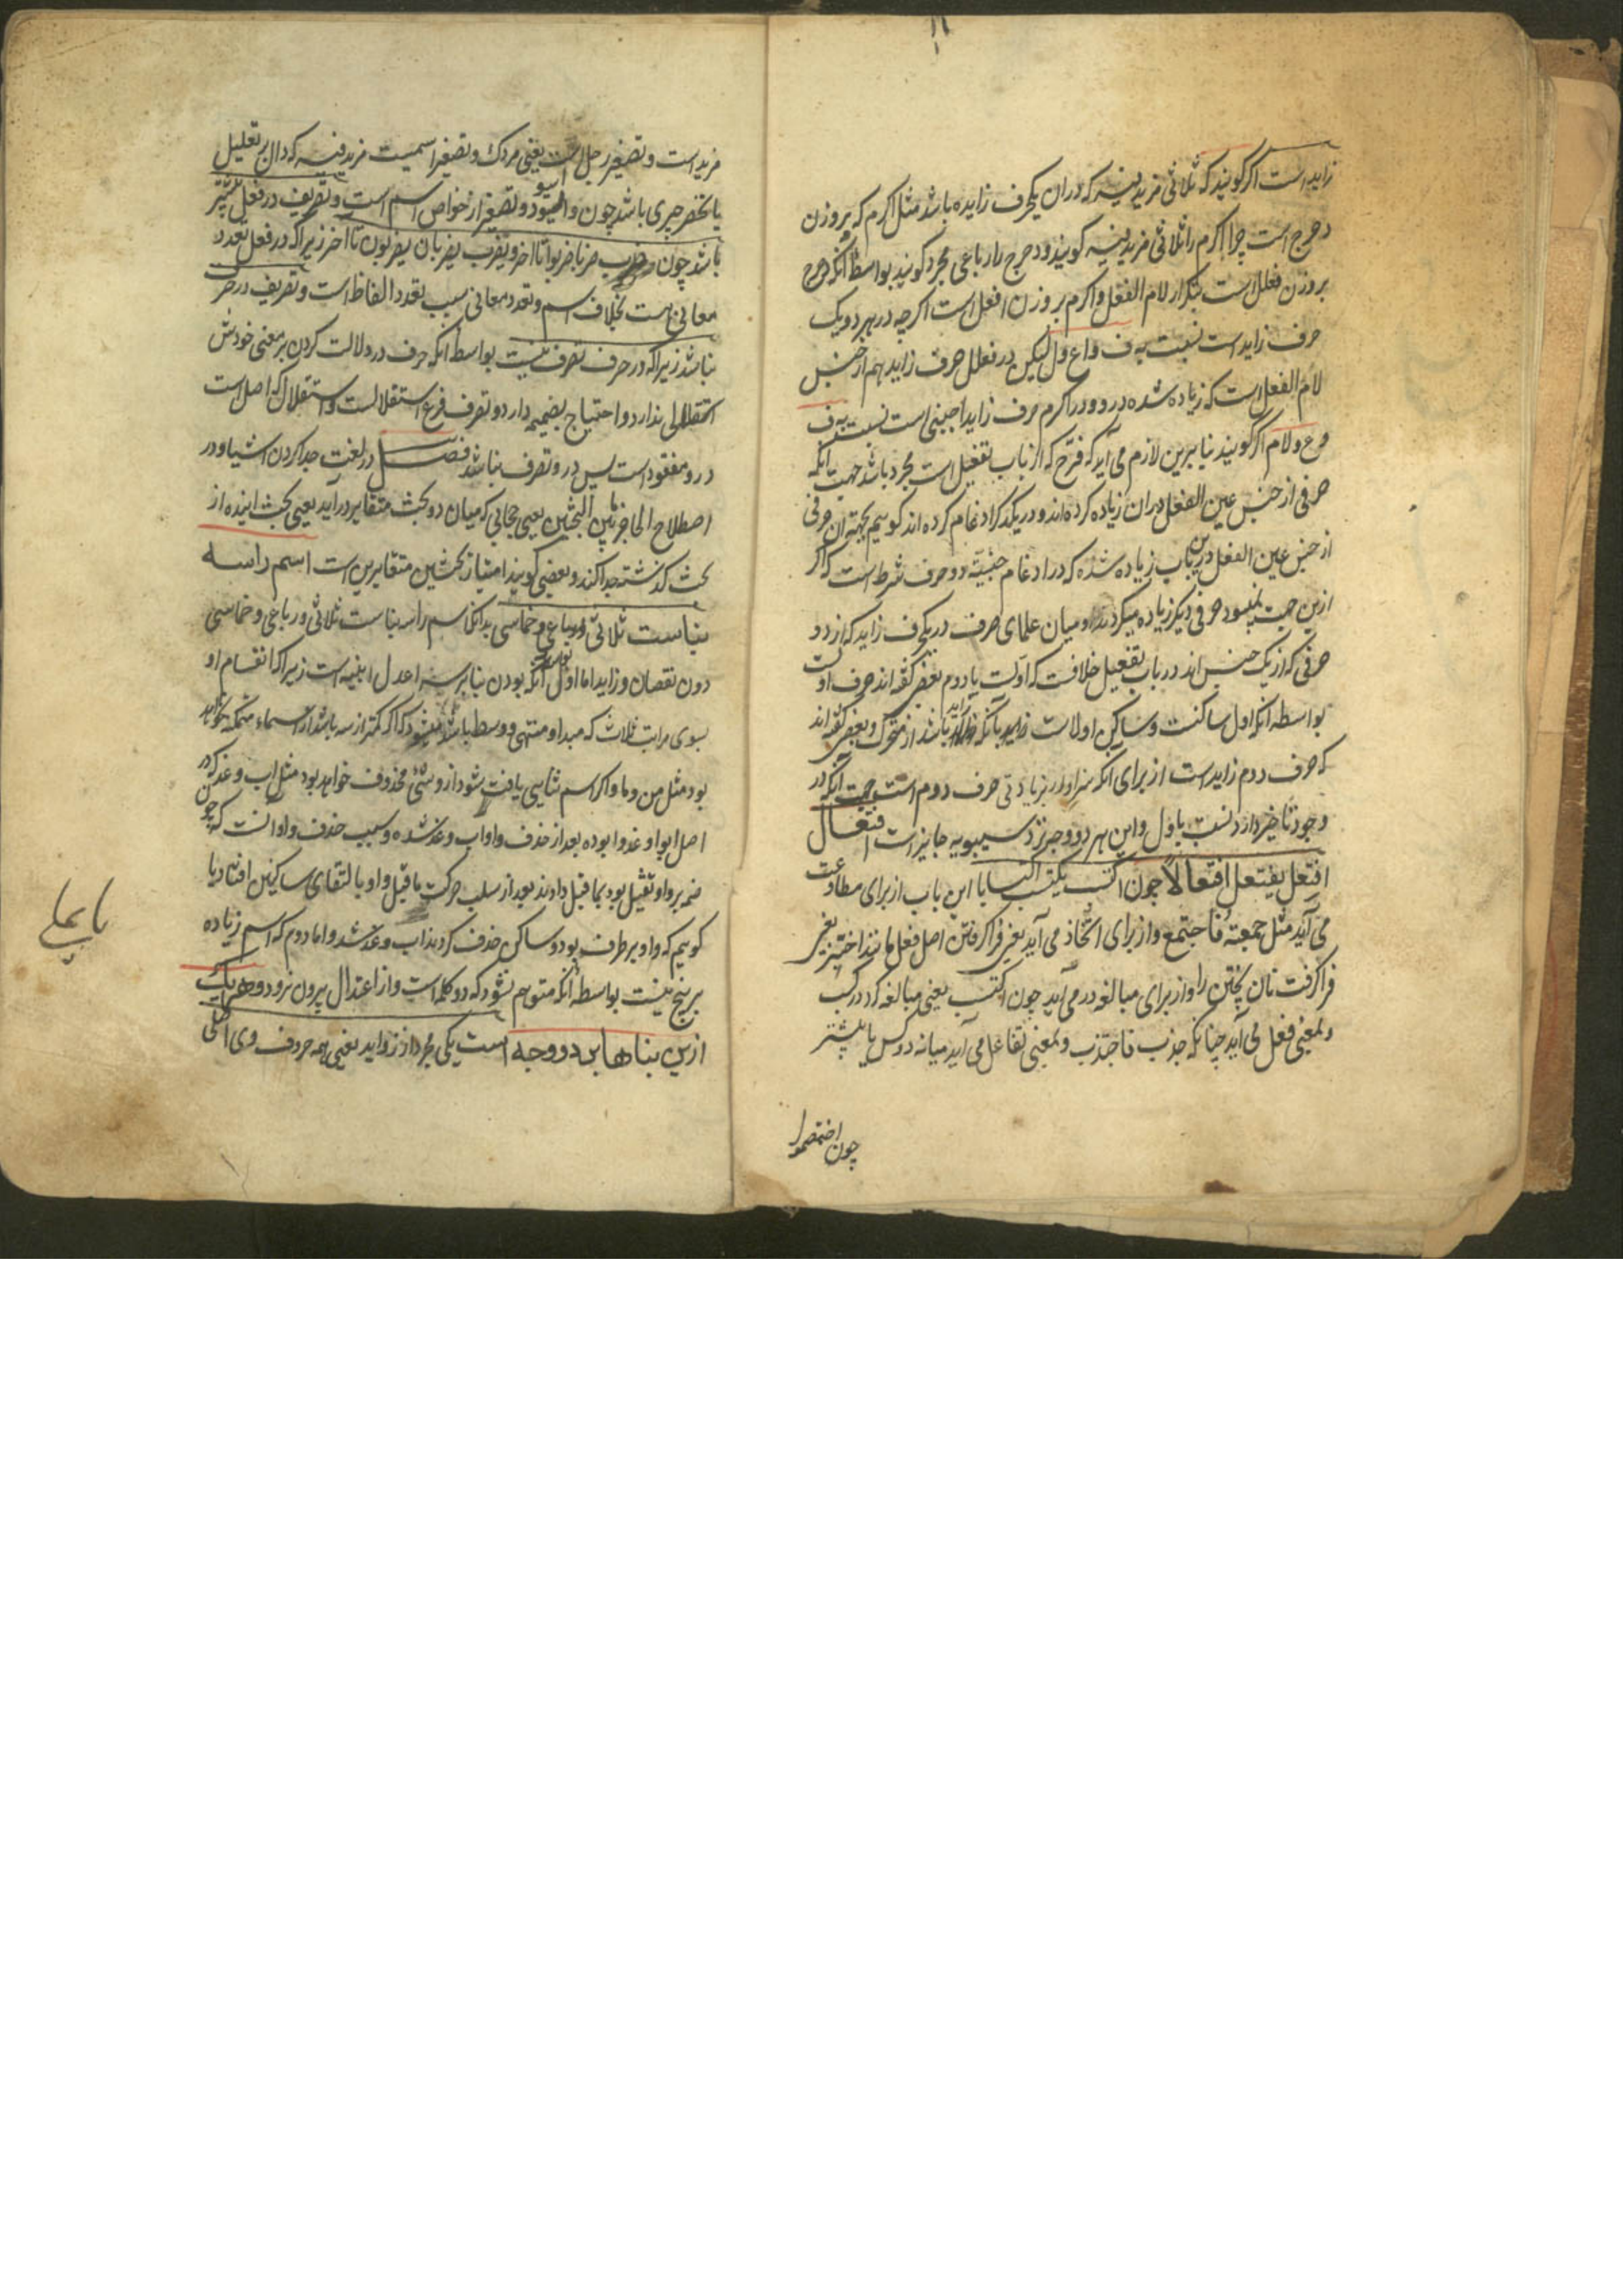 زایداست اگر گویند که ثلاثی مزید فیه که دران یکحرف زایده باشد مثل اکرم که بروزن
دحرج است چرا اکرم را ثلاثی مزید فیه گویند و دحرج را رباعی مجرد گویند بواسطه آنکه دحرج
بروزن فعلل است بتکرار لام الفعل و اکرم بروزن افعل است اگرچه در هر دو یک
حرف زاید است نسبت به ف و ع و ل لیکن در فعلل حرف زاید هم از جنس
لام الفعل است که زیاده شده درو و در اکرم حرف زاید اجنبی است نسبت به ف
و ع و لام اگر گویند بنابرین لازم می آید که فرّح که از باب تفعیل است مجرد باشد جهت آنکه
حرفی از جنس عین الفعل دران زیاده کرده اند و در یکدیگر ادغام کرده اند گوییم بجهت آن حرفی
از جنس عین الفعل درین باب زیاده شده که در ادغام جنسیّة دو حرف شرط است که اگر
ازین جهت نمیبود حرفی دیگر زیاده میکردند و میان علمای صرف در یکحرف زاید که از دو
حرفی که از یک جنس اند در باب تفعیل خلافست که اولست یا دوم بعضی گفته اند حرف اولست
بواسطه آنکه اول ساکنست و ساکن اولاست بآنکه زاید باشد از متحرک و بعضی گفته اند
که حرف دوم زایدست از برای آنکه سزاوار بزیادتی حرف دوم است جهت آنکه در
وجود تاخیر دارد نسبت باول و این هر دو وجه نزد سیبویه جایز است افتعال
افتعل یفتعل افتعالاً چون اکتسب یکتسب اکتسابا این باب از برای مطاوعت
می آید مثل جمعته فاجتمع و از برای اتخاذ می آید یعنی فرا گرفتن اصل فعل مانند اختبز یعنی
فرا گرفت نان پختن را و از برای مبالغه در می آید چون اکتسب یعنی مبالغه کرد در کسب
و بمعنی فعل می آید چنانکه جذب فاجتذب و بمعنی تفاعل می آید میانه دو کس یا بیشتر
چون اختصموا
مزید است و تصغیر رجل است یعنی مردک و تصغیر اسمیست مزید فیه که دال بر تقلیل
یا تحقیر چیزی باشد چون و اسیود و تصغیر از خواص اسم است و تصریف در فعل بیشتر
باشد چون ضرب ضربا ضربوا تا آخر و یضرب یضربان یضربون تا آخر زیرا که در فعل تعدد
معانی هست بخلاف اسم و تعدد معانی سبب تعدد الفاظ است و تصریف در حرف
نباشد زیرا که در حرف تصرف نیست بواسطه آنکه حرف در دلالت کردن بر معنی خودش
استقلالی ندارد و احتیاج بضمیمه دارد و تصرف فرع استقلالست و استقلال که اصل است
درو مفقود است پس درو تصرف نباشد فصل در لغت جدا کردن اشیا و در
اصطلاح الحاجز بین البحثین یعنی حجابی که میان دو بحث متغایر درآید یعنی بحث آینده از
بحث گذشته جدا کند و بعضی گویند امتیاز بحثین متغایرین است اسم را سه
بناست ثلاثی و رباعی و خماسی بدانکه اسم را سه بناست ثلاثی و رباعی و خماسی
دون نقصان و زاید اما اول آنکه بودن بنا بر سه اعدل ابنیه است زیرا که انقسام او
بسوی مراتب ثلاث که مبدا و منتهی و وسط باشد میشود که اگر کمتر از سه باشد از اسماء متمکنه نخواهد
بود مثل من و ما و اگر اسم ثنایی یافت شود ازو شئ محذوف خواهد بود مثل اب و غد که در
اصل ابو و غدو بوده بعد از حذف واو اب و غد شده و سبب حذف واو آنست که چون
ضمه بر واو ثقیل بود بماقبل دادند بعد از سلب حرکت ماقبل واو بالتقای ساکنین افتاد یا
گوییم که واو بر طرف بود و ساکن حذف کردند اب و غد شد و اما دوم که اسم زیاده
بر پنج نیست بواسطه آنکه متوهم نشود که دو کلمه است و از اعتدال بیرون نرود و هر یک
ازین بناها بر دو وجه است یکی مجرد از زواید یعنی همه حروف وی اصلی